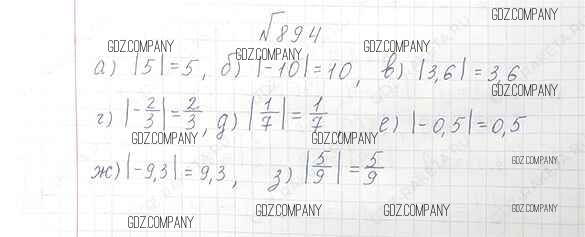 №894
а) |5| = 5, б) |-10| = 10, в) |3,6| = 3,6
г) |-2/3| = 2/3, д) |1/7| = 1/7, е) |-0,5| = 0,5
ж) |-9,3| = 9,3, з) |5/9| = 5/9
GDZ.COMPANY
GDZ.COMPANY
GDZ.COMPANY
GDZ.COMPANY
GDZ.COMPANY
GDZ.COMPANY
GDZ.COMPANY
GDZ.COMPANY
GDZ.COMPANY
GDZ.COMPANY
GDZ.COMPANY
GDZ.COMPANY